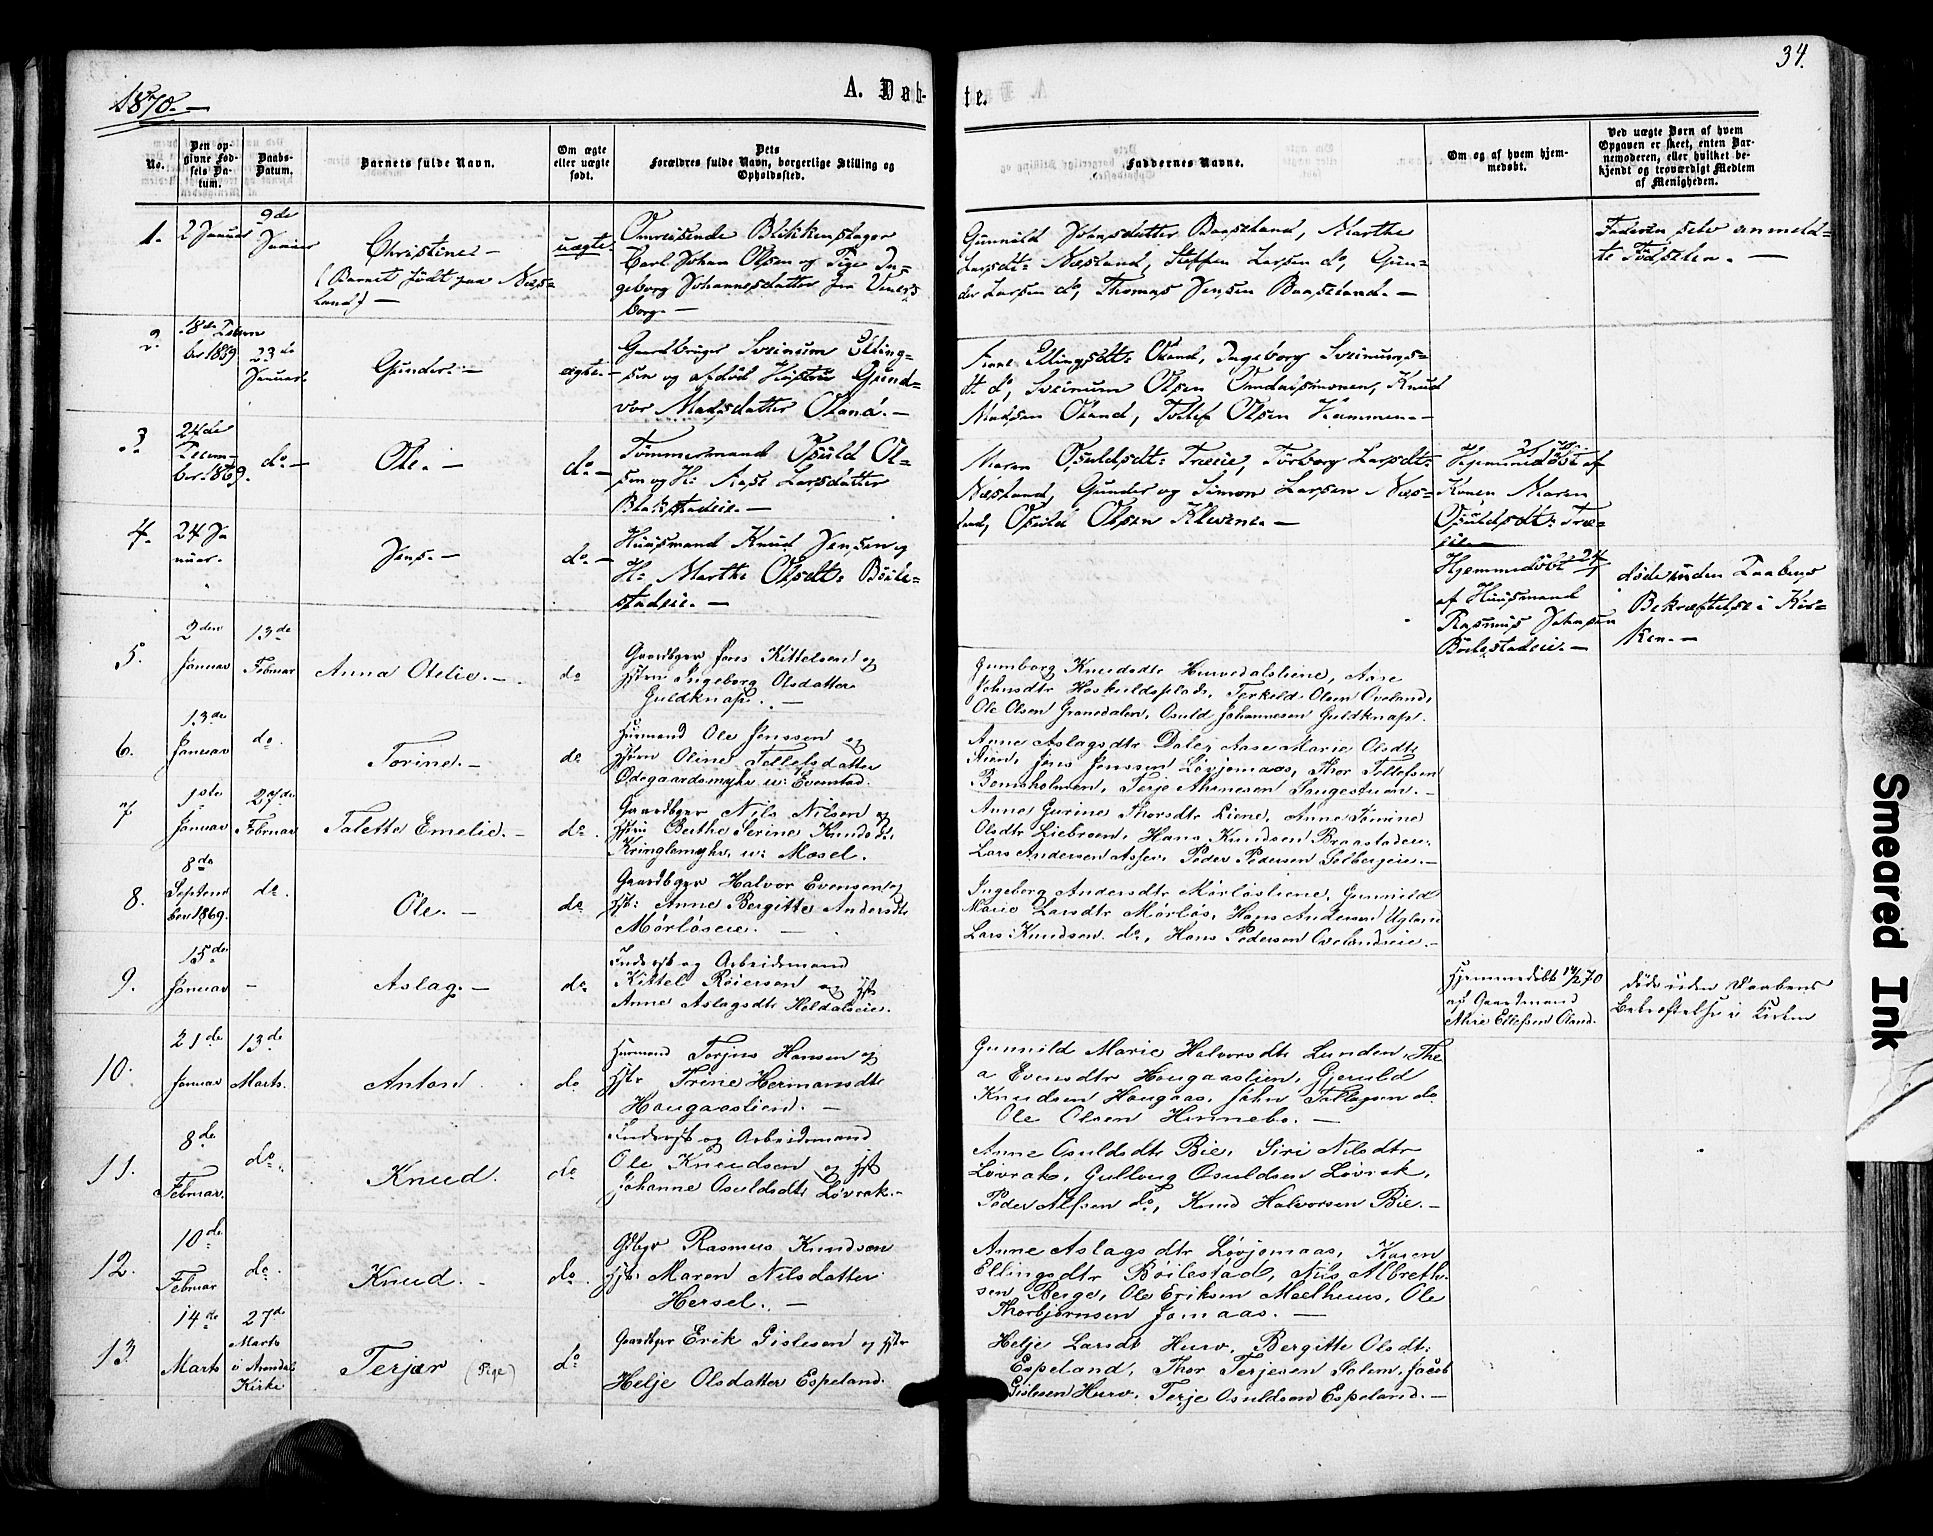 1870.-
A. Døb-
te.
34.
No.
Den op-
givne Fød-
sels Da-
tum.
Daabs-
Datum.
Barnets fulde Navn.
Om ægte
eller uægte
født.
Dets
Forældres fulde Navn, borgerlige Stilling og
Opholdssted.
Faddernes Navne.
Om og af hvem hjem-
medøbt.
Ved uægte Børn af hvem
Opgaven er skeet, enten Bar-
nemoderen, eller hvilket be-
kjendt og troværdigt Medlem
af Menigheden.
1.
2 Januar
9de
Januar
Christine -
(Barnet født paa Næs-
land) -
uægte
Omreisende Blikkenslager
Carl Johan Olsen og Pige In-
geborg Johannesdatter fra Veners-
borg. -
Gunnild Jensdatter Baaseland, Marthe
Larsdt: Næsland, Steffen Larsen do, Gun-
der Larsen do, Thomas Jensen Baaseland. -
Faderen selv anmeld-
te Fødselen. -
2.
18de Decem
ber 1869
23de
Januar.
Gunder. -
ægte. -
Gaardbruger Sveinum Elling-
sen og afdød Hustru Gund-
vor Madsdatter Oland. -
Ellingsdt: Oland, Ingeborg Sveinums-
dt do, Sveinum Olsen Knud
Madsen Oland, Tollef Olsen Hammen. -
3.
24de
Decem-
ber 1869.
do. -
Ole. -
do. -
Tømmermand Osuld Ol-
sen og H: Aase Larsdatter
Blakstadeie. -
Maren Osuldsdt: Træeie, Torborg Larsdt:
Næsland, Gunder og Simon Larsen Næs-
land, Osuld Olsen Klevene. -
Hjemmedøbt af
Konen Maren
Osuldsdt: Træ-
eie. -
4.
24 Ja
nuar.
Jens. -
do. -
Huusmand Knud Jensen og
H: Marthe Olsdt: Bøile-
stadeie. -
Hjemmedøbt 24/1
af Huusmand
Rasmus Johnsen
Bøilestadeie. -
døde uden Daabens
Bekræftelse i Kir-
ken. -
5.
2den
Januar
13de
Februar
Anna Otelie. -
do
Gaardbgr Jens Kittelsen og
Hstru Ingeborg Olsdatter
Guldknap. -
Gumborg Knudsdtr Hurvedalsliene, Aase
Johnsdtr Høskuldsplads, Terkeld Olsen Oveland,
Ole Olsen Granedalen, Osuld Johannesen Guldknap.
6.
13de
Januar
do.
Torine. -
do
Husmand Ole Jenssen og
Hstru Oline Tellefsdatter
Ødegaardsmyhr u: Evenstad.
Anne Aslagsdtr Dale, Aase Marie Olsdtr
Stien, Jens Jenssen Løvjomaas, Thor Tellefsen
Bomsholmen, Terje Ahnesen Saugestuen. -
7.
1ste
Januar
27de
Februar
Talette Emelie. -
do.
Gaardbgr Nils Nilsen og
Hstru Berthe Serine Knudsdt:
Kringlemyhr, u: Mosel.
Anne Gurine Thorsdtr Liene, Anne Tomine
Olsdtr Liebroen, Hans Knudsen Braastadeie,
Lars Andersen Asser, Peder Pedersen Solbergeie. -
8.
8de
Septem
ber 1869.
do.
Ole. -
do.
Gaardbgr Halvor Evensen og
Hst: Anne Bergitte Andersdt
Mørløseie. -
Ingeborg Andersdtr Mørløsliene, Gunnild
Marie Larsdtr Mørløs, Hans Andersen Ugland
Lars Knudsen do, Hans Pedersen Ovelandseie. -
9.
15de
Januar
-
Aslag. -
do.
Inderst og Arbeidsmand
Kittel Reiersen og Hst
Anne Aslagsdtr Heldalseie.
Hjemmedøbt 14/2 70
af Gaardmand
Aline Ellefsen Oland.
døde uden Daabens
Bekræftelse i Kirken
10.
21de
Januar
13de
Marts.
Anton.
do
Husmand Torjus Hansen og
Hstr Trine Hermansdtr
Hougaaslien. -
Gunnild Marie Halvorsdtr Lunden, The
a Evensdtr Hougaaslien, Gjeruld
Knudsen Hougaas, John Tallagsen do
Ole Olsen Hinnebo. -
11.
8de
Februar.
do.
Knud.
do.
Inderst og Arbeidsmand
Ole Knudsen og Hst
Johanne Osuldsdtr Løvrak. -
Anne Osuldsdtr Bie, Siri Nilsdtr
Løvrak, Gullaug Osuldsen Løvrak,
Peder Alfsen do, Knud Halvorsen Bie. -
12.
10de
Februar
do.
Knud. -
do.
Gdbgr Rasmus Knudsen
Hst: Maren Nilsdatter
Hersel. -
Anne Aslagsdtr Løvjomaas, Karen
Ellingsdtr Bøilestad, Nils Albreth-
sen Berge, Ole Eriksen Mælhuus, Ole
Thorbjørnsen Jomaas. -
13.
14de
Marts
27de
Marts
i Arendal
Kirke
Terjer (Pige)
do
Gaardbgr Erik Gislesen og Hstr
Helje Olsdatter Espeland.
Helje Larsdt Hurv, Bergitte Olsdt:
Espeland, Thor Terjesen Salem, Jacob
Gislesen Hurv, Terje Osuldsen Espeland. -
Smeared Ink